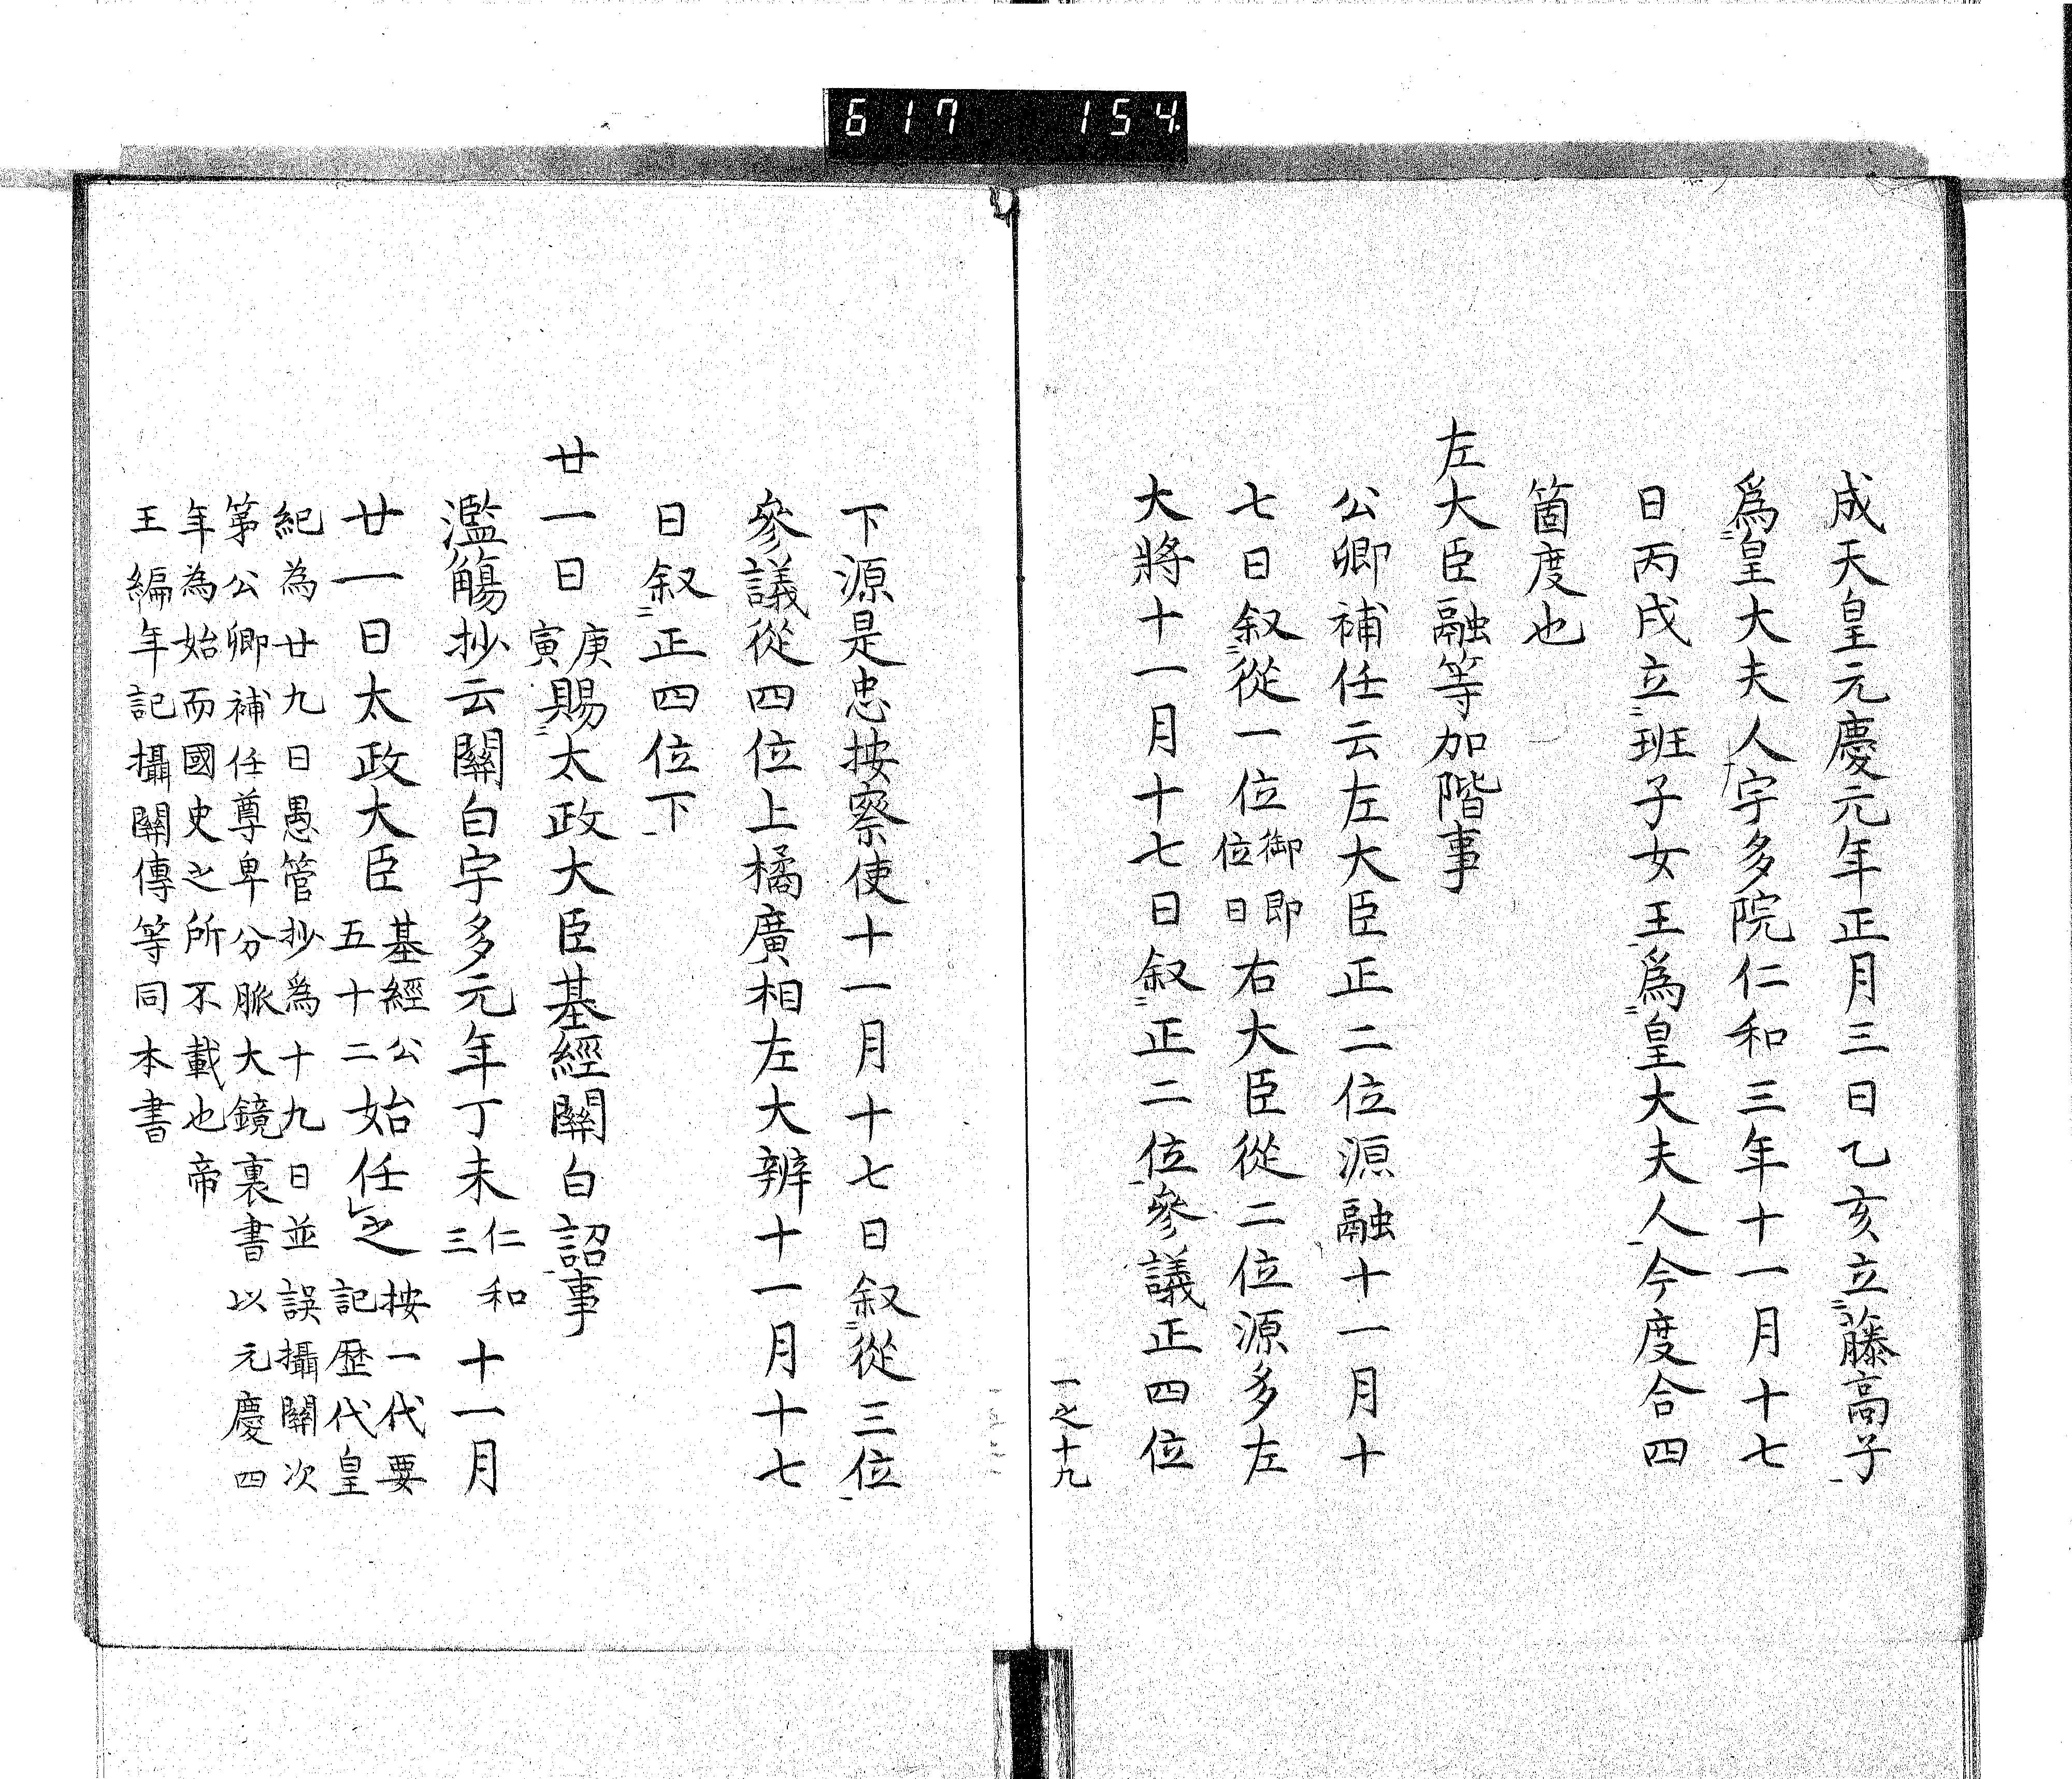 617 154
成天皇元慶元年正月三日乙亥立藤高子
爲皇大夫人宇多院仁和三年十一月十七
日丙戌立班子女王爲皇大夫人今度合四
箇度也
左大臣融等加階事
公卿補任云左大臣正二位源融十一月十
七日叙從一位御即位日右大臣從二位源多左
大將十一月十七日叙正二位參議正四位
一之十九
下源是忠按察使十一月十七日叙從三位
參議從四位上橘廣相左大辨十一月十七
日叙正四位下
廿一日庚寅賜太政大臣基經關白詔事
濫觴抄云關白宇多元年丁未仁和三十一月
廿一日太政大臣基經公五十二始任之按一代要記歷代皇
紀為廿九日愚管抄爲十九日並誤攝關次
第公卿補任尊卑分脈大鏡裏書以元慶四
年為始而國史之所不載也帝
王編年記攝關傳等同本書